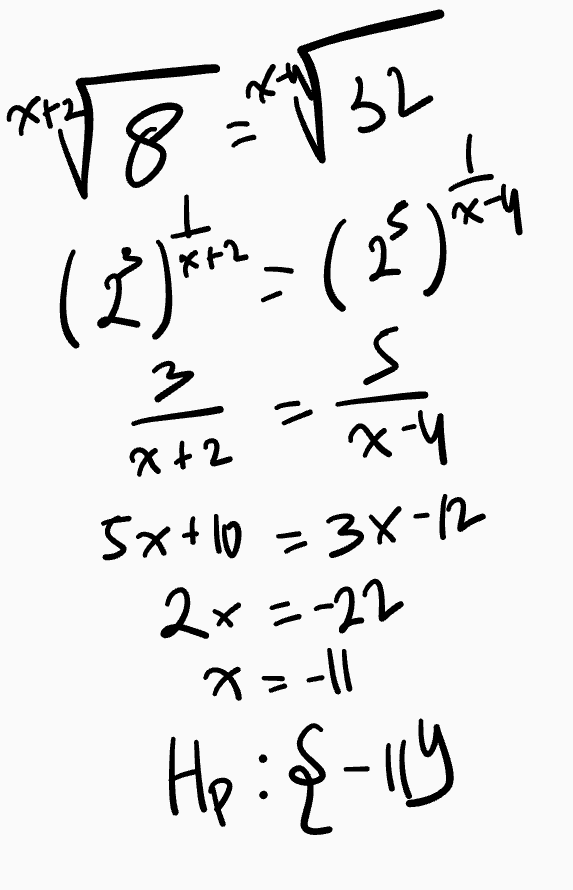 ˣ⁺²√8 = ˣ⁻⁴√32
(2³)^(1/(x+2)) = (2⁵)^(1/(x-4))
3/(x+2) = 5/(x-4)
5x+10 = 3x-12
2x = -22
x = -11
Hp : {-11}